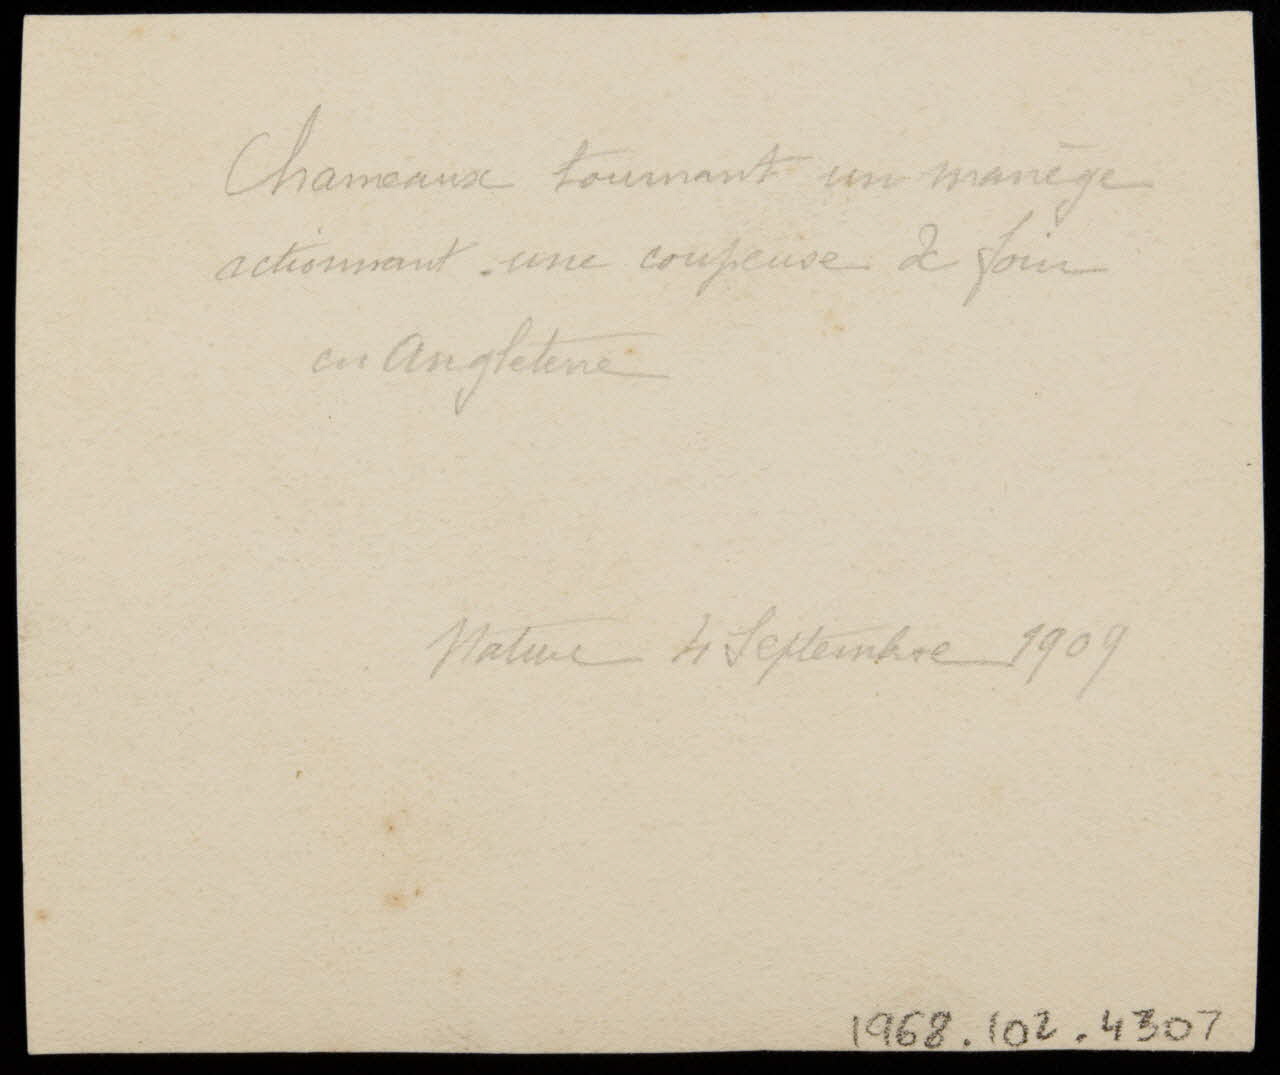 Chameaux tournant un manège
actionnant une coupeuse de foin
en Angleterre
Nature 4 Septembre 1909
1968.102.4307